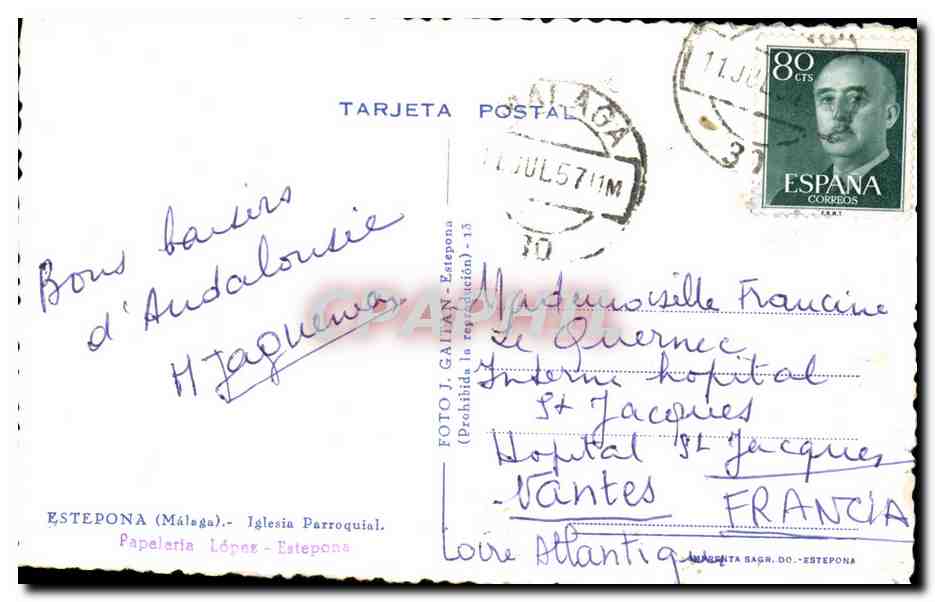 TARJETA POSTAL
MALAGA
11 JUL 57 11M
10
11 JUL
37
80
CTS
ESPAÑA
CORREOS
F.N.M.T.
Bons baisers
d'Andalousie
Mademoiselle Francine
Le Quernec
Interne hopital
St Jacques
Hopital St Jacques
Nantes
FRANCIA
Loire Atlantique
FOTO J. GAITAN - Estepona
(Prohibida la reproducción) - 13
ESTEPONA (Málaga).- Iglesia Parroquial.
Papelería López - Estepona
IMPRENTA SAGR. DO.-ESTEPONA